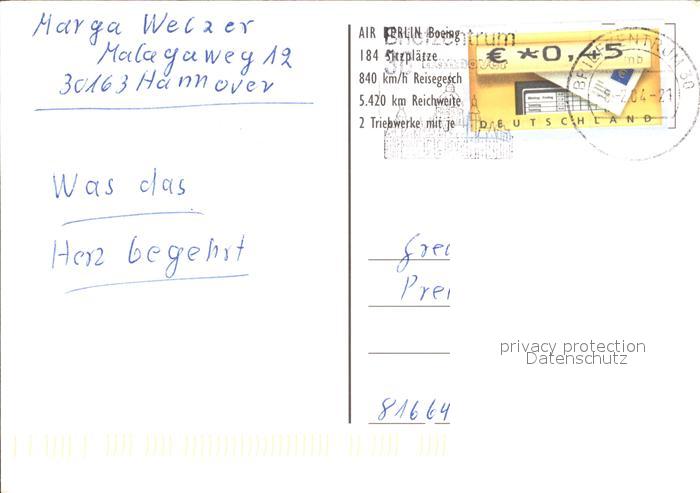 Marga Welzer
Malagaweg 12
30163 Hannover
Was das
Herz begehrt
AIR BERLIN Boeing
184 Sitzplätze
840 km/h Reisegesch
5.420 km Reichweite
2 Triebwerke mit je
Briefzentrum
€ *0,45
DEUTSCHLAND
BRIEFZENTRUM 30
mb
2.04-21
Frei
Prei
privacy protection
Datenschutz
81664